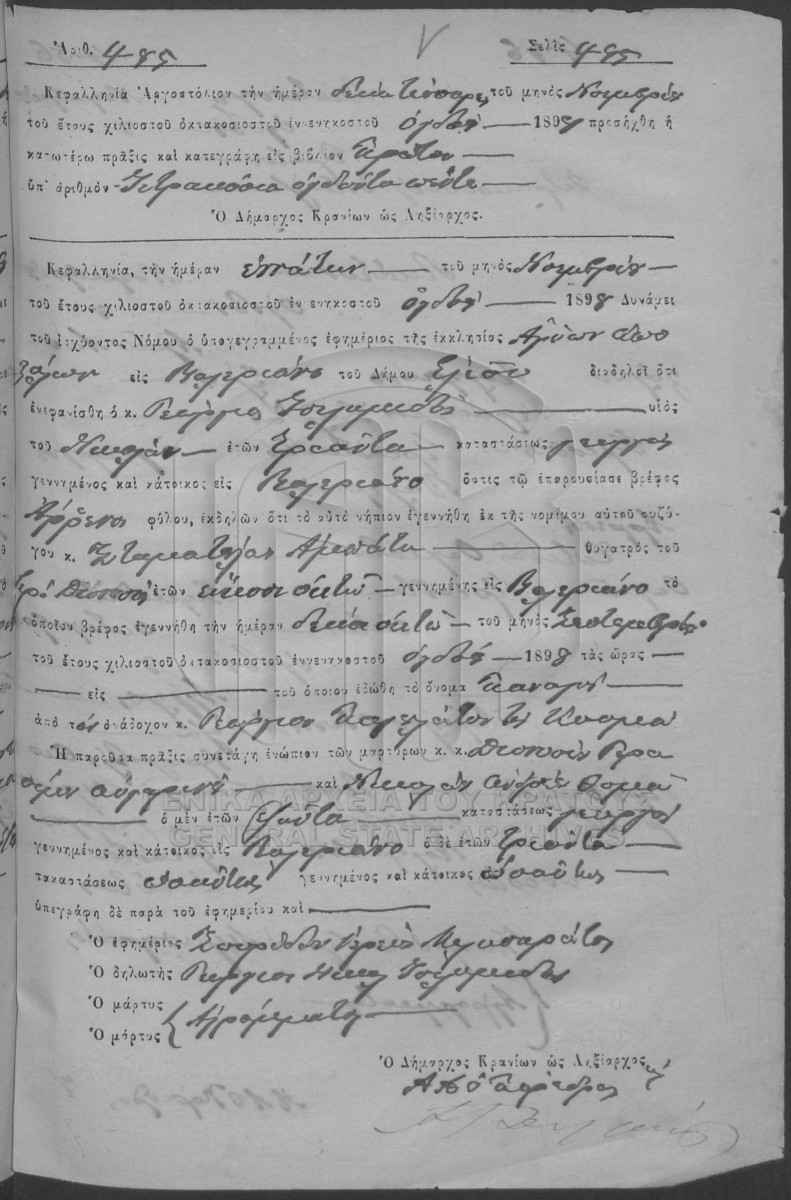 Ἀριθ. 485 Σελὶς 485
Κεφαλληνία Ἀργοστόλιον τὴν ἡμέραν δεκάτη τέσσαρες τοῦ μηνὸς Νοεμβρίου
τοῦ ἔτους χιλιοστοῦ ὀκτακοσιοστοῦ ἐνενηκοστοῦ ὀγδόου 1898 προσήχθη ἡ
κατωτέρω πρᾶξις καὶ κατεγράφη εἰς βιβλίον πρῶτον
ὑπ' ἀριθμὸν Τετρακόσια ὀγδοῆντα πέντε
Ὁ Δήμαρχος Κρανίων ὡς Ληξίαρχος.
Κεφαλληνία, τὴν ἡμέραν ἐννάτην τοῦ μηνὸς Νοεμβρίου
τοῦ ἔτους χιλιοστοῦ ὀκτακοσιοστοῦ ἐνενηκοστοῦ ὀγδόου 1898 Δυνάμει
τοῦ ἰσχύοντος Νόμου ὁ ὑπογεγραμμένος ἐφημέριος τῆς ἐκκλησίας Ἁγίων Ἀπο
στόλων εἰς Βαλεριάνο τοῦ Δήμου διαδηλοῖ ὅτι
ἐνεφανίσθη ὁ κ. Γεώργιος υἱὸς
τοῦ Νικολάου ἐτῶν τριάντα καταστάσεως γεωργὸς
γεννημένος καὶ κάτοικος εἰς Βαλεριάνο ὅστις τῷ ἐπαρουσίασε βρέφος
ἄρρενος φύλου, ἐκδηλῶν ὅτι τὸ αὐτὸ νήπιον ἐγεννήθη ἐκ τῆς νομίμου αὐτοῦ συζύ-
γου κ. Σταματούλας θυγατρὸς τοῦ
ἐτῶν εἴκοσι ὀκτὼ γεννημένης εἰς Βαλεριάνο τὸ
ὁποῖον βρέφος ἐγεννήθη τὴν ἡμέραν δεκάτη ὀκτὼ τοῦ μηνὸς Σεπτεμβρίου
τοῦ ἔτους χιλιοστοῦ ὀκτακοσιοστοῦ ἐννενηκοστοῦ ὀγδόου 1898 τὰς ὥρας
εἰς τοῦ ὁποίου ἐδώθη τὸ ὄνομα Παναγῆς
ἀπὸ τὸν ἀνάδοχον κ. Γεώργιον τοῦ Κοσμᾶ
Ἡ παροῦσα πρᾶξις συνετάγη ἐνώπιον τῶν μαρτύρων κ. κ.
καὶ Νικολάου
ὁ μὲν ἐτῶν ἑξῆντα καταστάσεως γεωργὸς
γεννημένος καὶ κάτοικος εἰς Βαλεριάνο ὁ δὲ ἐτῶν τριάντα
τακαστάσεως ὡσαύτως γεννημένος καὶ κάτοικος ὡσαύτως
ὑπεγράφη δὲ παρὰ τοῦ ἐφημερίου καὶ
Ὁ ἐφημέριος Σπυρίδων ἱερεὺς
Ὁ δηλωτὴς Γεώργιος Νικολ.
Ὁ μάρτυς
Ὁ μάρτυς Ἀγράμματοι
Ὁ Δήμαρχος Κρανίων ὡς Ληξίαρχος
Ὁ Πάρεδρος
ΓΕΝΙΚΑ ΑΡΧΕΙΑ ΤΟΥ ΚΡΑΤΟΥΣ
GENERAL STATE ARCHIVES